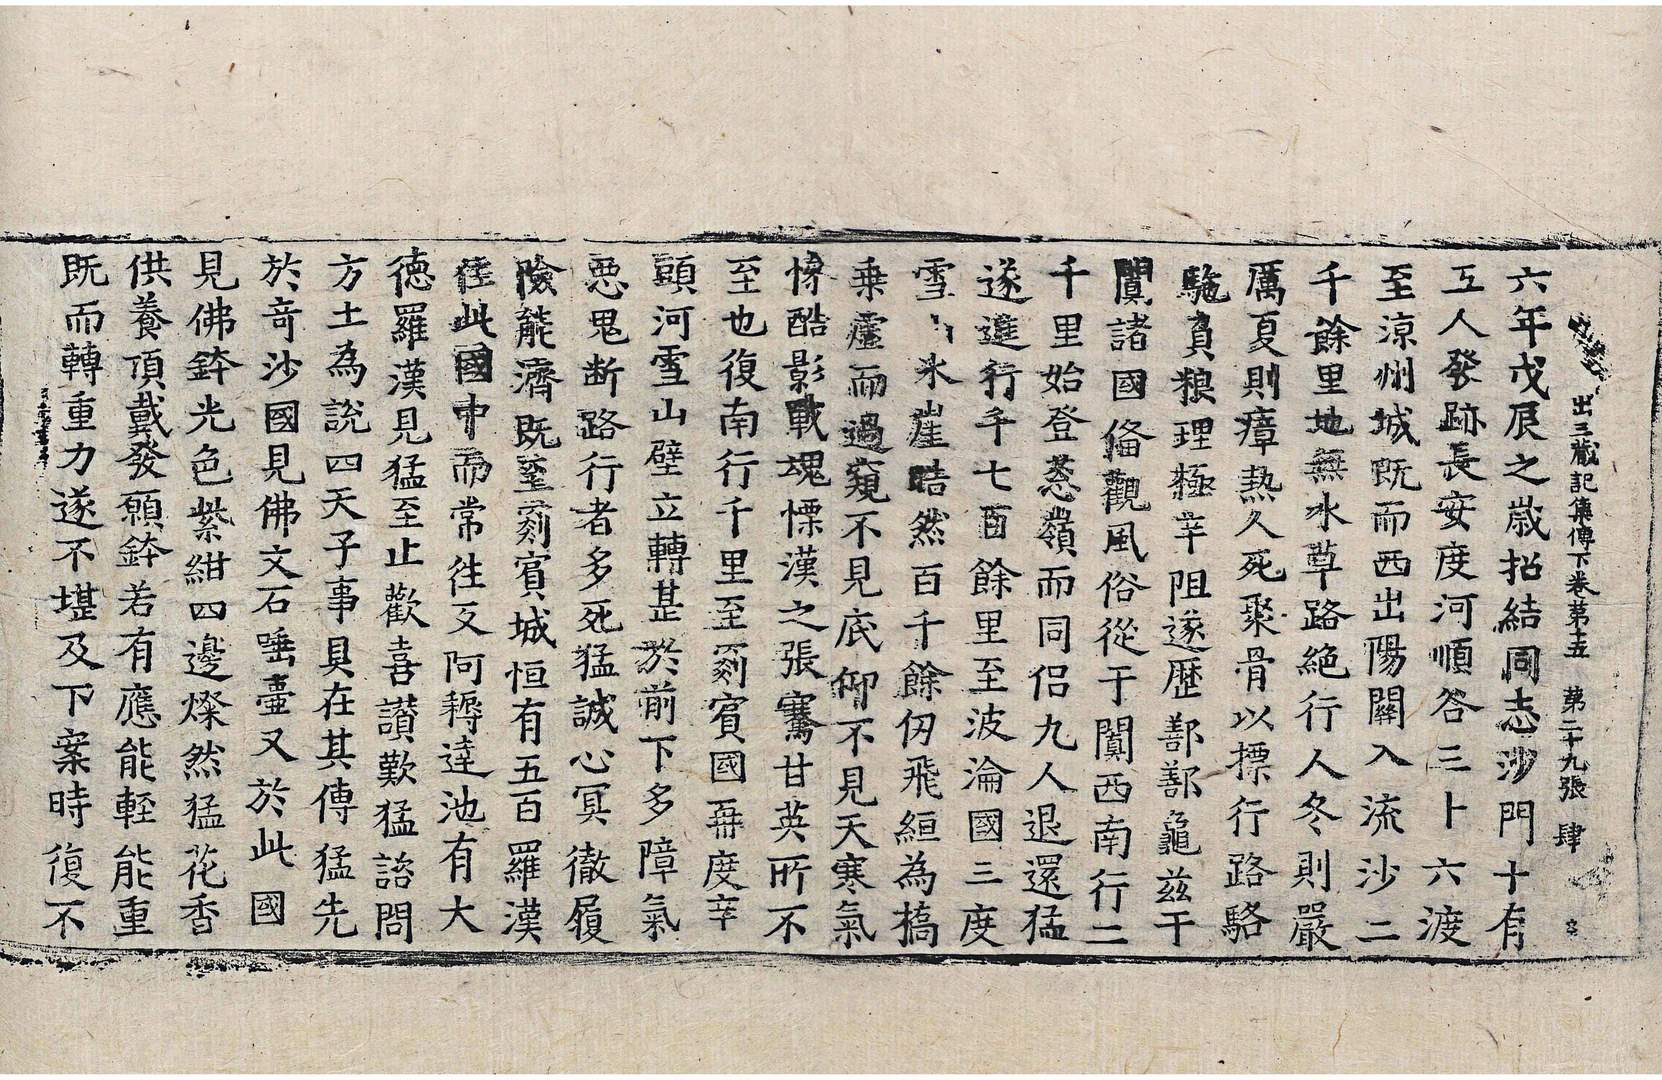 出三藏記集傳下卷第十五 第二十九張 肆
六年戊辰之歲招結同志沙門十有
五人發跡長安度河順谷三十六渡
至涼州城既而西出陽關入流沙二
千餘里地無水草路絕行人冬則嚴
厲夏則瘴熱久死聚骨以摽行路駱
駞負粮理極辛阻遂歷鄯鄯龜茲于
闐諸國俻觀風俗從于闐西南行二
千里始登葱嶺而同侶九人退還猛
遂進行千七百餘里至波淪國三度
雪山氷崖晧然百千餘仞飛絙為橋
乗虛而過窺不見底仰不見天寒氣
慘酷影戰魂慄漢之張騫甘英所不
至也復南行千里至罽賓國再度辛
頭河雪山壁立轉甚於前下多障氣
惡鬼断路行者多死猛誠心冥徹履
險能濟既至罽賓城恒有五百羅漢
住此國中而常往反阿耨達池有大
德羅漢見猛至止歡喜讃歎猛諮問
方土為說四天子事具在其傳猛先
於奇沙國見佛文石唾壷又於此國
見佛鉢光色紫紺四邊燦然猛花香
供養頂戴發願鉢若有應能輕能重
既而轉重力遂不堪及下案時復不